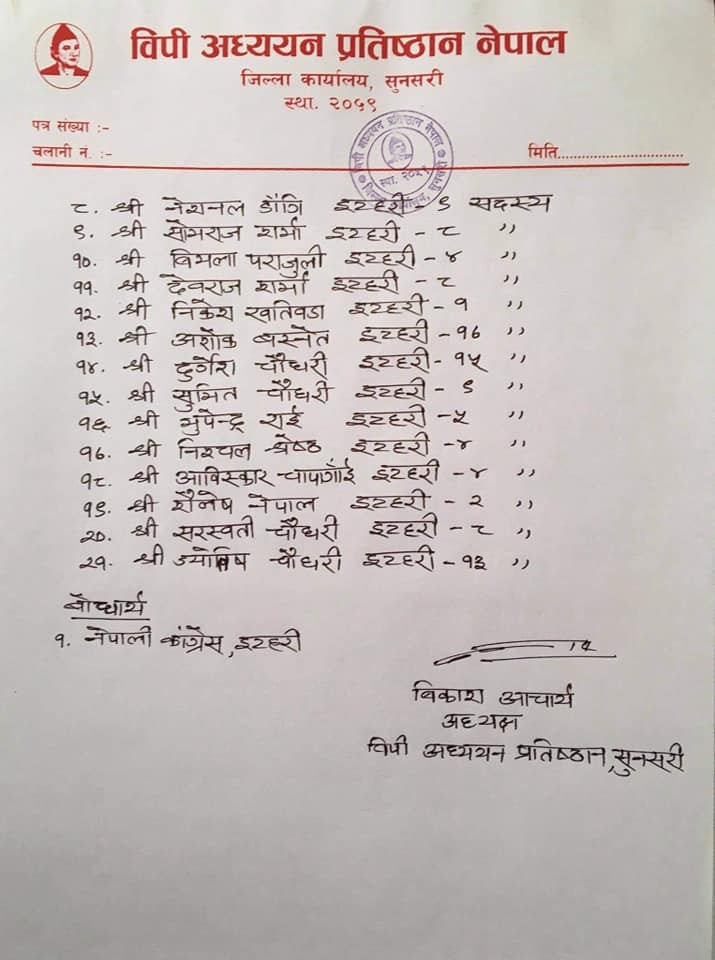 विपी अध्ययन प्रतिष्ठान नेपाल
जिल्ला कार्यालय, सुनसरी
स्था. २०५९
पत्र संख्या :-
चलानी नं. :-
मिति.................................
विपी अध्ययन प्रतिष्ठान नेपाल
स्था. २०५९
जिल्ला कार्यालय, सुनसरी
८. श्री नेशनल डाँगि इटहरी - ९ सदस्य
९. श्री सोमराज शर्मा इटहरी - ८ ,,
१०. श्री बिमला पराजुली इटहरी - ४ ,,
११. श्री देवराज शर्मा इटहरी - ८ ,,
१२. श्री निकेश खतिवडा इटहरी - १ ,,
१३. श्री अशोक बस्नेत इटहरी - १७ ,,
१४. श्री दुर्गेश चौधरी इटहरी - १५ ,,
१५. श्री सुमित चौधरी इटहरी - ९ ,,
१६. श्री भुपेन्द्र राई इटहरी - ५ ,,
१७. श्री निश्चल श्रेष्ठ इटहरी - ४ ,,
१८. श्री आविस्कार चापागाँई इटहरी - ४ ,,
१९. श्री शैलेष नेपाल इटहरी - २ ,,
२०. श्री सरस्वती चौधरी इटहरी - ८ ,,
२१. श्री ज्योतिष चौधरी इटहरी - १३ ,,
बोधार्थ
१. नेपाली कांग्रेस, इटहरी
विकाश आचार्य
अध्यक्ष
विपी अध्ययन प्रतिष्ठान, सुनसरी